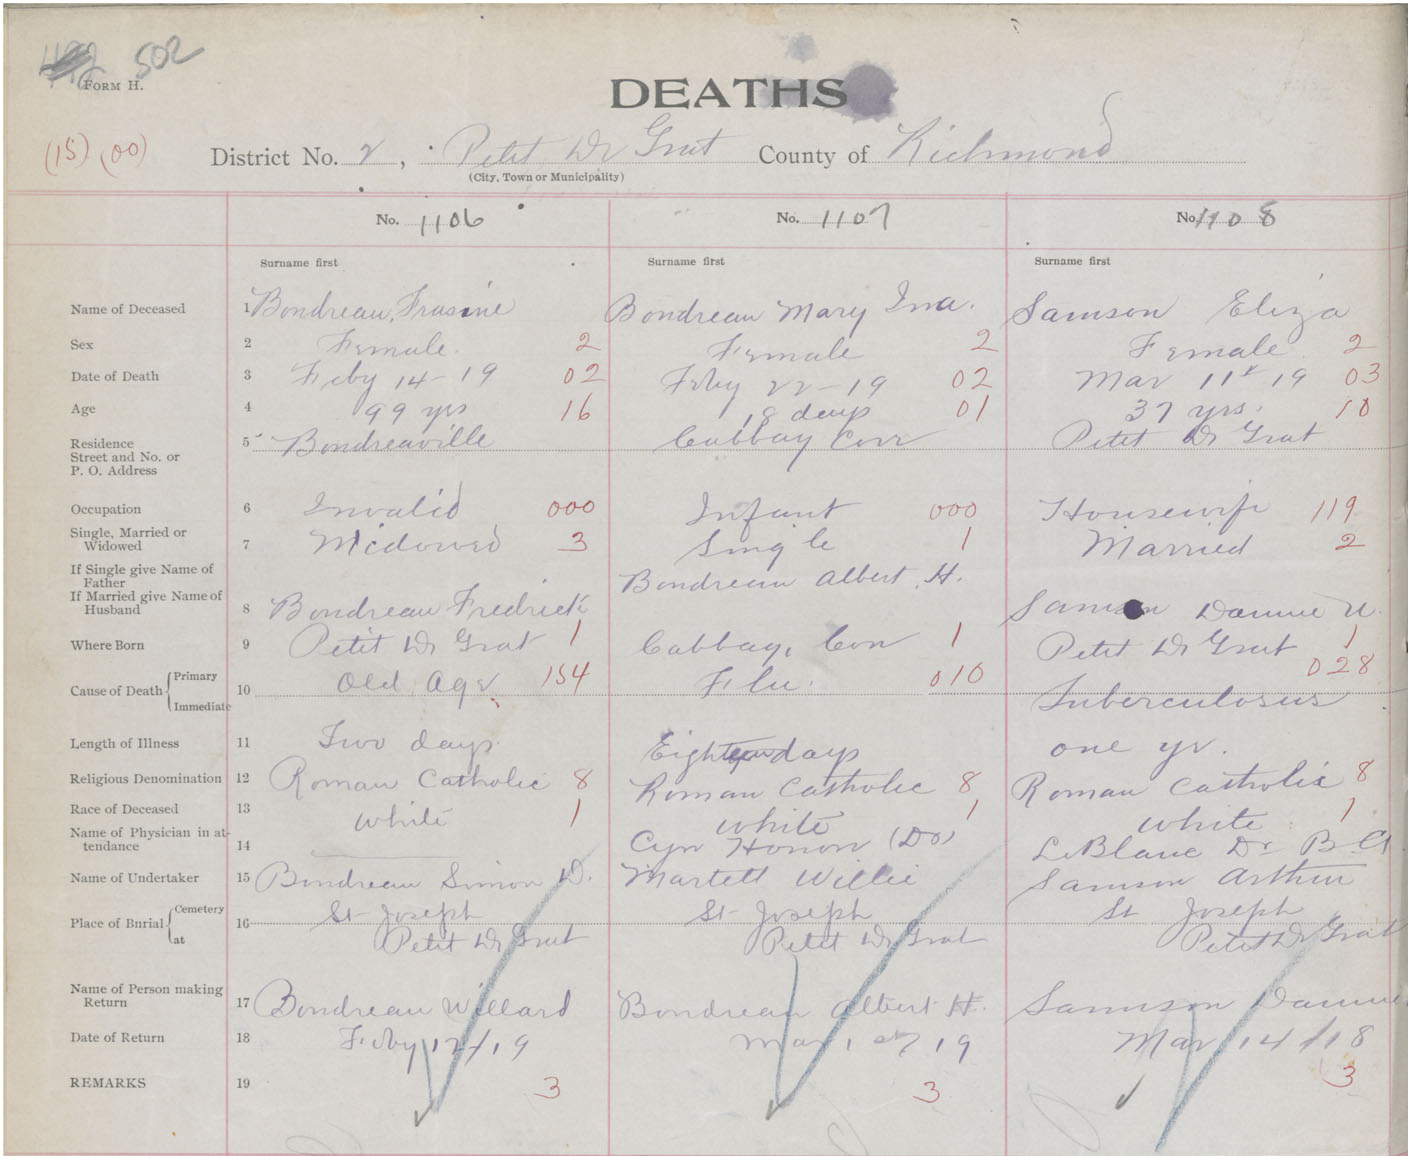 502
FORM H.
DEATHS
(15) (00)
District No. 2, Petit Dr Grat County of Richmond
(City, Town or Municipality)
No. 1106 No. 1107 No. 1108
Surname first Surname first Surname first
Name of Deceased 1 Bondreau, Frasine Bondreau Mary Ina. Samson Eliza
Sex 2 Female. 2 Female 2 Female 2
Date of Death 3 Feby 14-19 02 Feby 22-19 02 Mar 11 19 03
Age 4 99 yrs 16 18 days 01 37 yrs. 10
Residence
Street and No. or
P. O. Address
5 Bondreauville Cabbay Covr Petit Dr Grat
Occupation 6 Invalid 000 Infant 000 Housewife 119
Single, Married or
Widowed
7 Widowed 3 Single 1 Married 2
If Single give Name of
Father
Bondreau Albert H.
If Married give Name of
Husband
8 Bondreau Fredrick Samson
Where Born 9 Petit Dr Grat 1 Cabbay, Cov 1 Petit Dr Grat 1
Cause of Death Primary
Immediate
10 Old Age 154 Flu. 010 Tuberculosus 028
Length of Illness 11 Two days Eighteen days one yr.
Religious Denomination 12 Roman Catholic 8 Roman Catholic 8 Roman Catholic 8
Race of Deceased 13 White 1 White 1 White 1
Name of Physician in at-
tendance
14 LeBlanc Dr B
Name of Undertaker 15 Bondreau Simon D. Martell Willie Samson Arthur
Place of Burial Cemetery
at
16 St Joseph St Joseph St Joseph
Petit Dr Grat Petit Dr Grat Petit Dr Grat
Name of Person making
Return
17 Bondreau Willard Bondreau Albert H. Samson
Date of Return 18 Feby 17/19 Mar 1 st 19 Mar 14/18
REMARKS 19 3 3 3